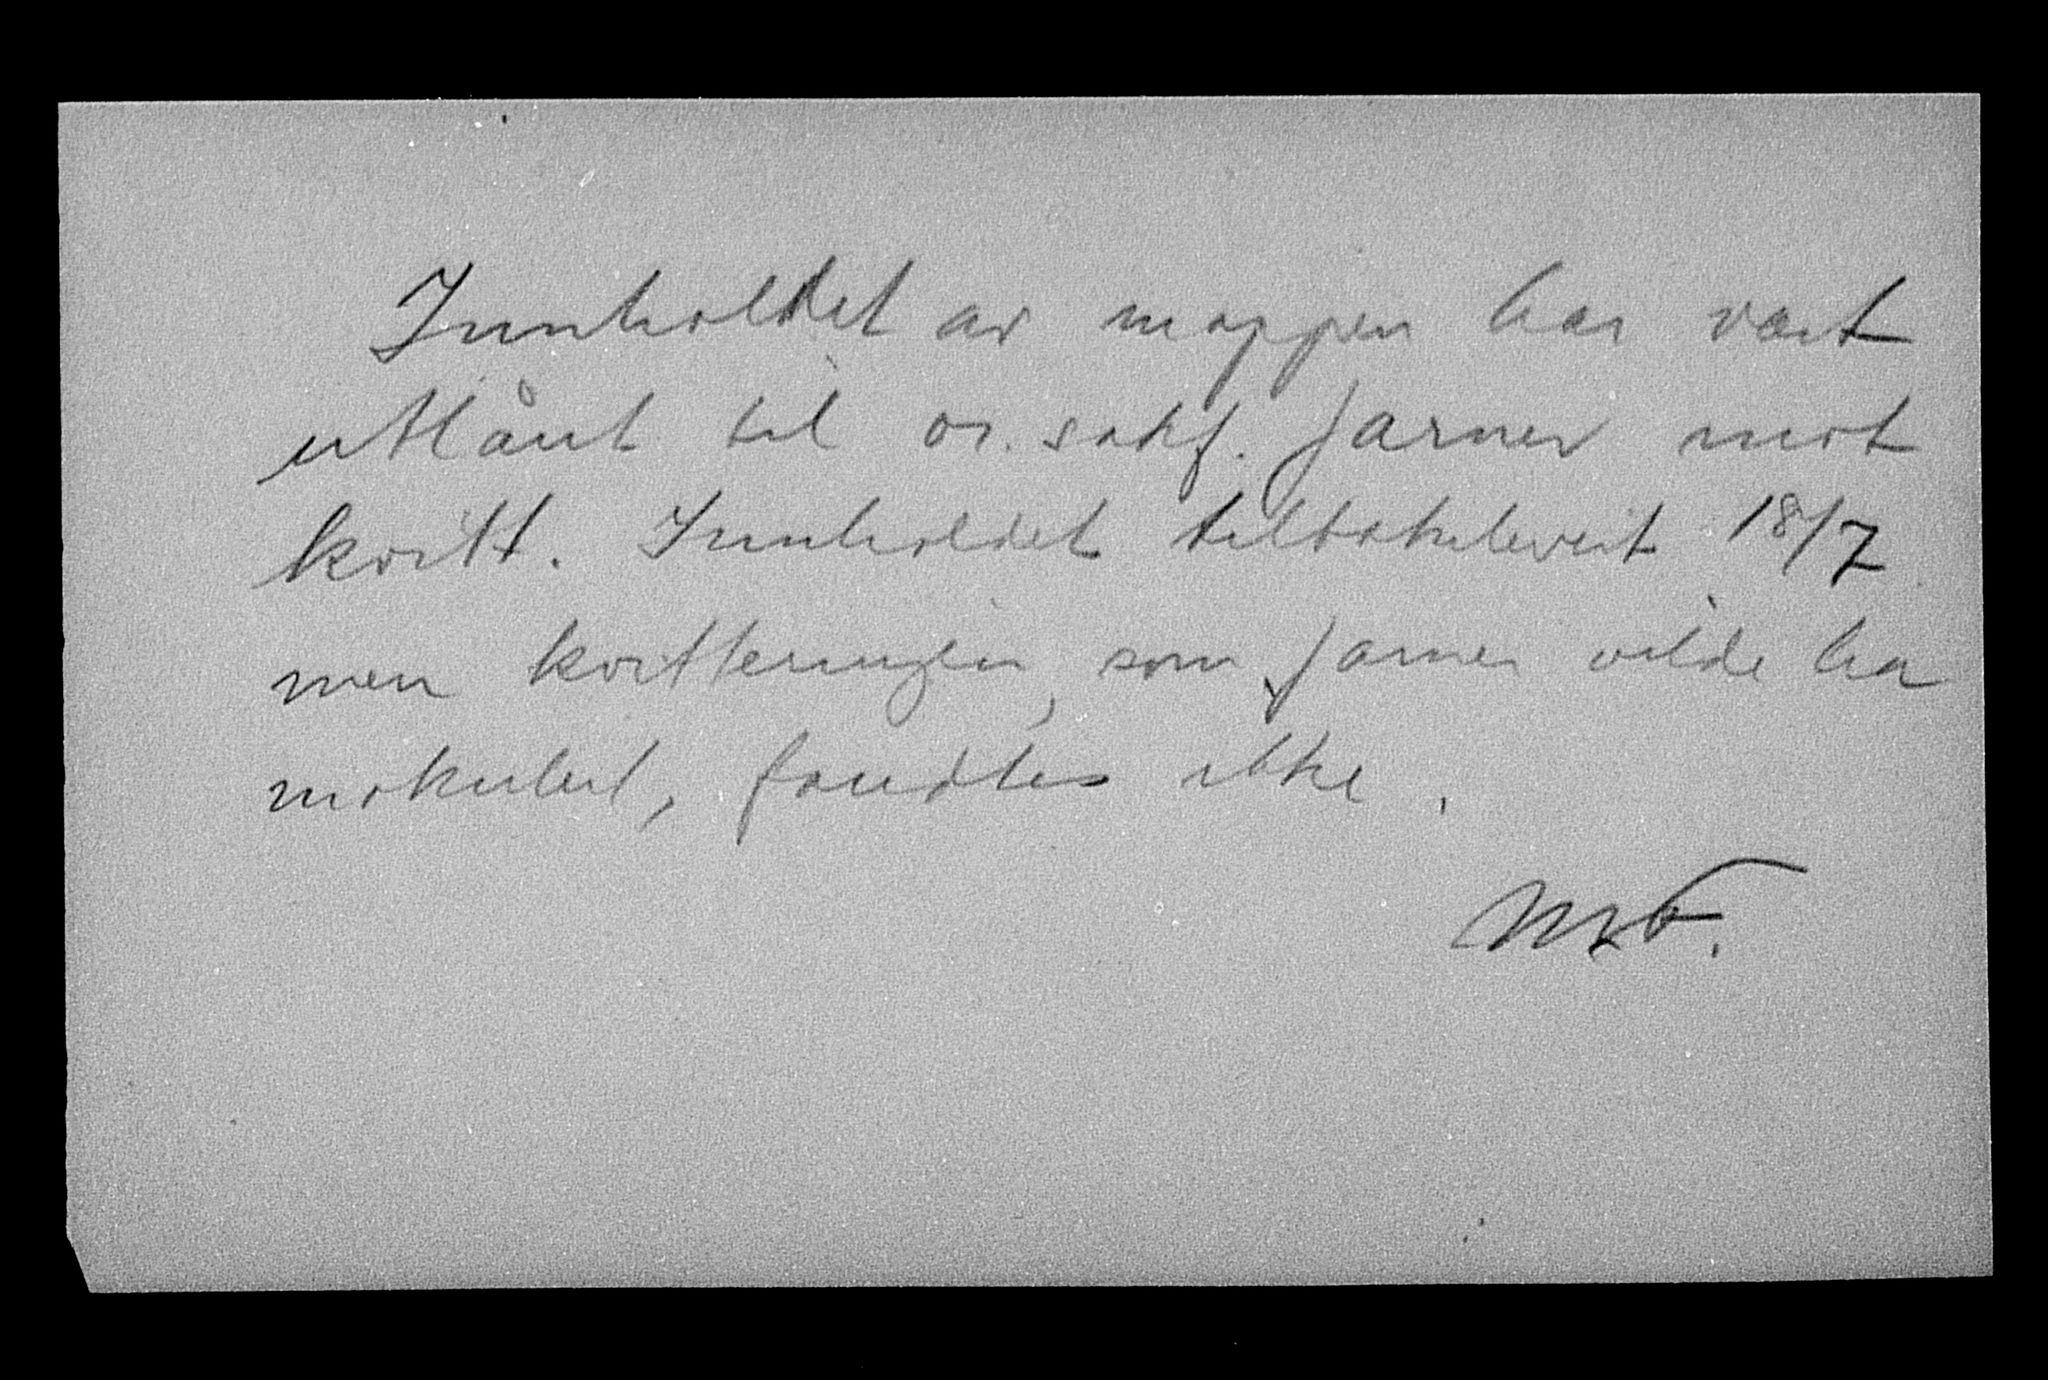 Innholdet av mappen har vært
utlånt til or. sakf. Jarner mot
kvitt. Innholdet tilbakelevert 18/7
men kvitteringen, som Jarner vilde ha
makulert, fandtes ikke.